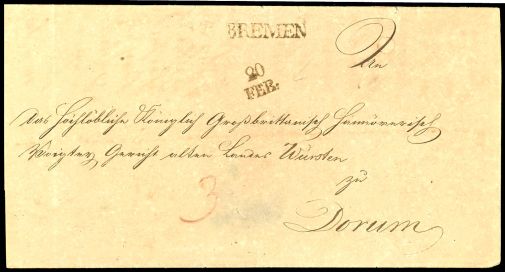 BREMEN
20
FEB.
An
das Hochlöbliche Königlich Großbrittanisch Hannöverisch
Voigtey Gericht alten Landes Wursten
zu
3
Dorum